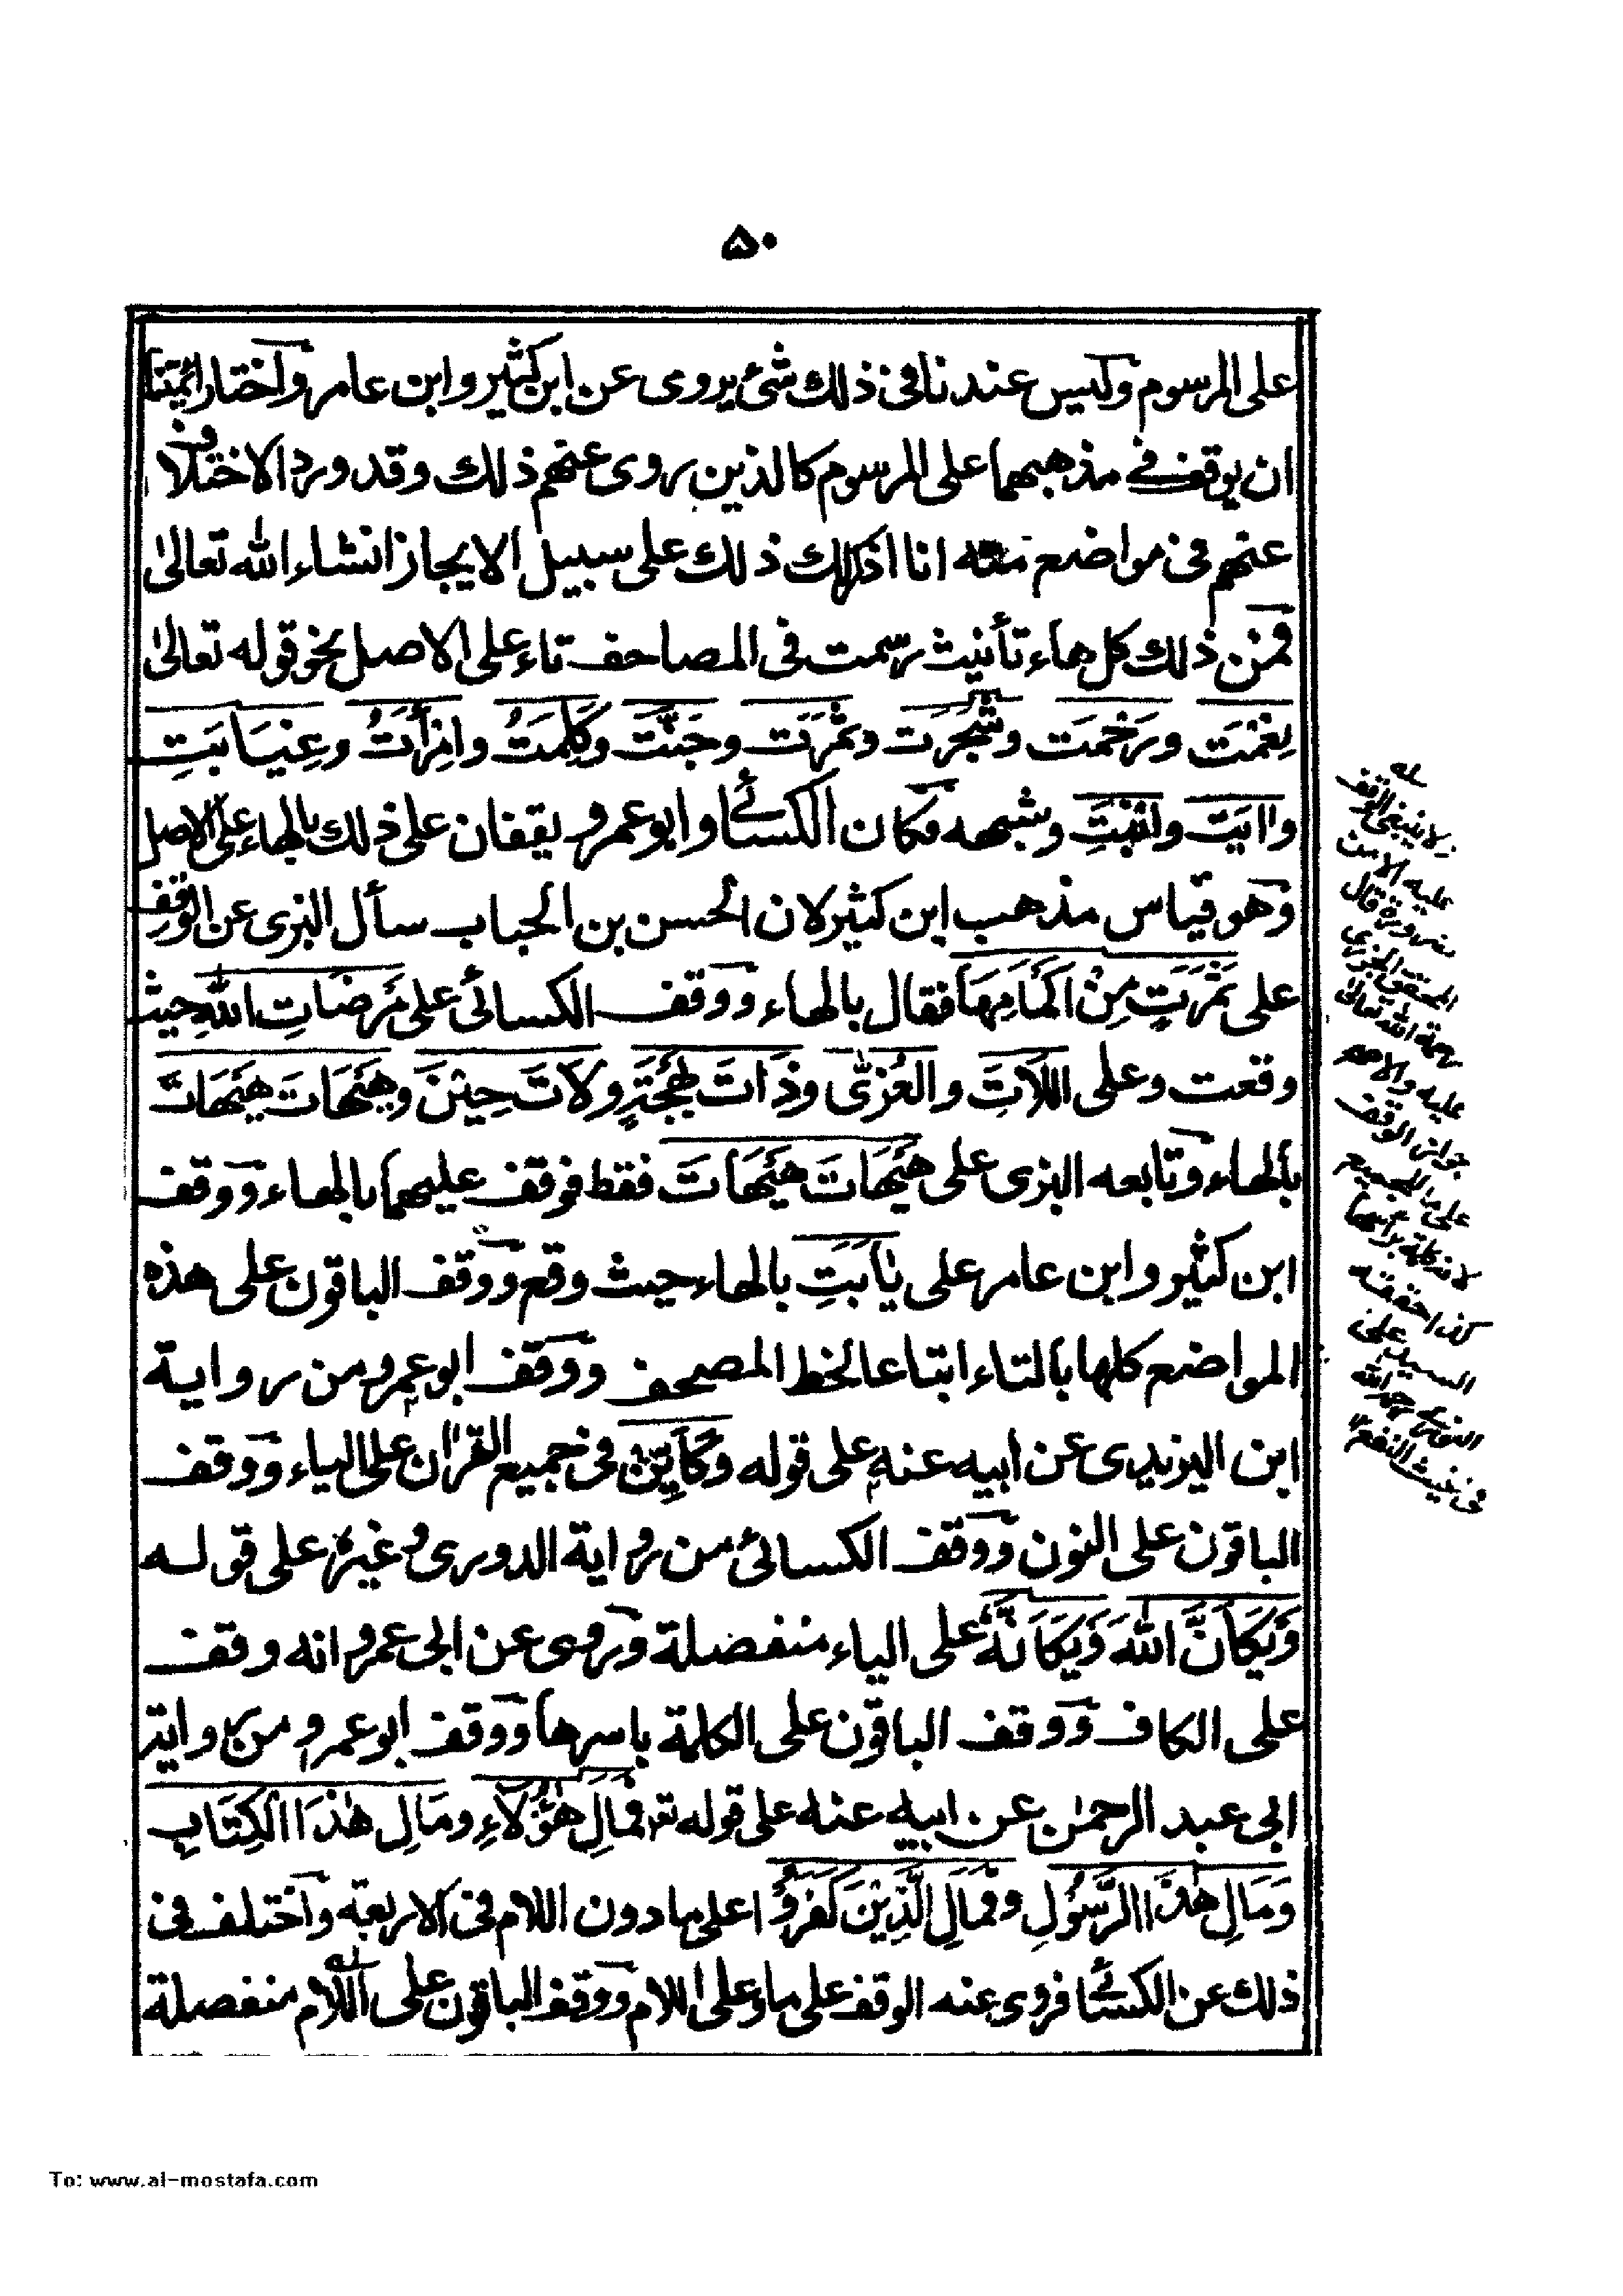 ۵۰
على المرسوم وليس عندنا فى ذلك شئ يروى عن ابن كثير وابن عامر واختار ائمتنا
ان يوقف فے مذهبهما على المرسوم كالذين روى عنهم ذلك وقد ورد الاختلاف
عنهم فى مواضع منه انا اذكر لك ذلك على سبيل الايجاز انشاء الله تعالىٰ
فمن ذلك كل هاء تأنيث رسمت فى المصاحف تاء على الاصل نحو قوله تعالىٰ
نِعْمَتَ ورَحْمَتَ وشَجَرَت وثَمَرَت وجَنَّت وكَلِمَتُ وامْرَأَتُ وغَيَابَتِ
واايَت وابْنَتِ وشبهه فكان الكسائے وابو عمرو يقفان على ذلك بالهاء على الاصل
وهو قياس مذهب ابن كثير لان الحسن بن الحباب سأل البزى عن الوقف
على ثَمَرَتٍ مِنْ اَكْمَامِهَا فقال بالهاء ووقف الكسائى على مَرْضَاتِ اللهِ حيث
وقعت وعلى اللَّاتَ والعُزّٰى وذَاتَ بَهْجَةٍ ولَاتَ حِيْنَ وهَيْهَاتَ هَيْهَاتَ
بالهاء وتابعه البزى على هَيْهَاتَ هَيْهَاتَ فقط فوقف عليهما بالهاء ووقف
ابن كثير وابن عامر على يٰاَبَتِ بالهاء حيث وقع ووقف الباقون على هذه
المواضع كلها بالتاء اتباعا لخط المصحف ووقف ابو عمرو من رواية
ابن اليزيدى عن ابيه عنه على قوله وكَاَيِّنْ فى جميع القرآن على الياء ووقف
الباقون على النون ووقف الكسائى من رواية الدورى وغيره على قوله
وَيْكَاَنَّ اللهَ وَيْكَاَنَّهٗ على الياء منفصلة وروى عن ابى عمرو انه وقف
على الكاف ووقف الباقون على الكلمة باسرها ووقف ابو عمرو من رواية
ابى عبد الرحمٰن عن ابيه عنه على قوله تع فَمَالِ هٰؤُلَاءِ ومَالِ هٰذَا الْكِتَابِ
وَمَالِ هٰذَا الرَّسُوْلِ وفَمَالِ الَّذِيْنَ كَفَرُوْا على ما دون اللام فى الاربعة واختلف فى
ذلك عن الكسائے فروى عنه الوقف على ما وعلى اللام ووقف الباقون على اللام منفصلة
له
لا ينبغى الوقف
عليه الا من
ضرورة قال
المحقق الجزرى
رحمة الله تعالى
عليه والاصح
جواز الوقف
على ما للجميع
لانه كلمة براسها
كذا حققه
السيد على
النورى رحمه الله
فى غيث النفع
To: www.al-mostafa.com